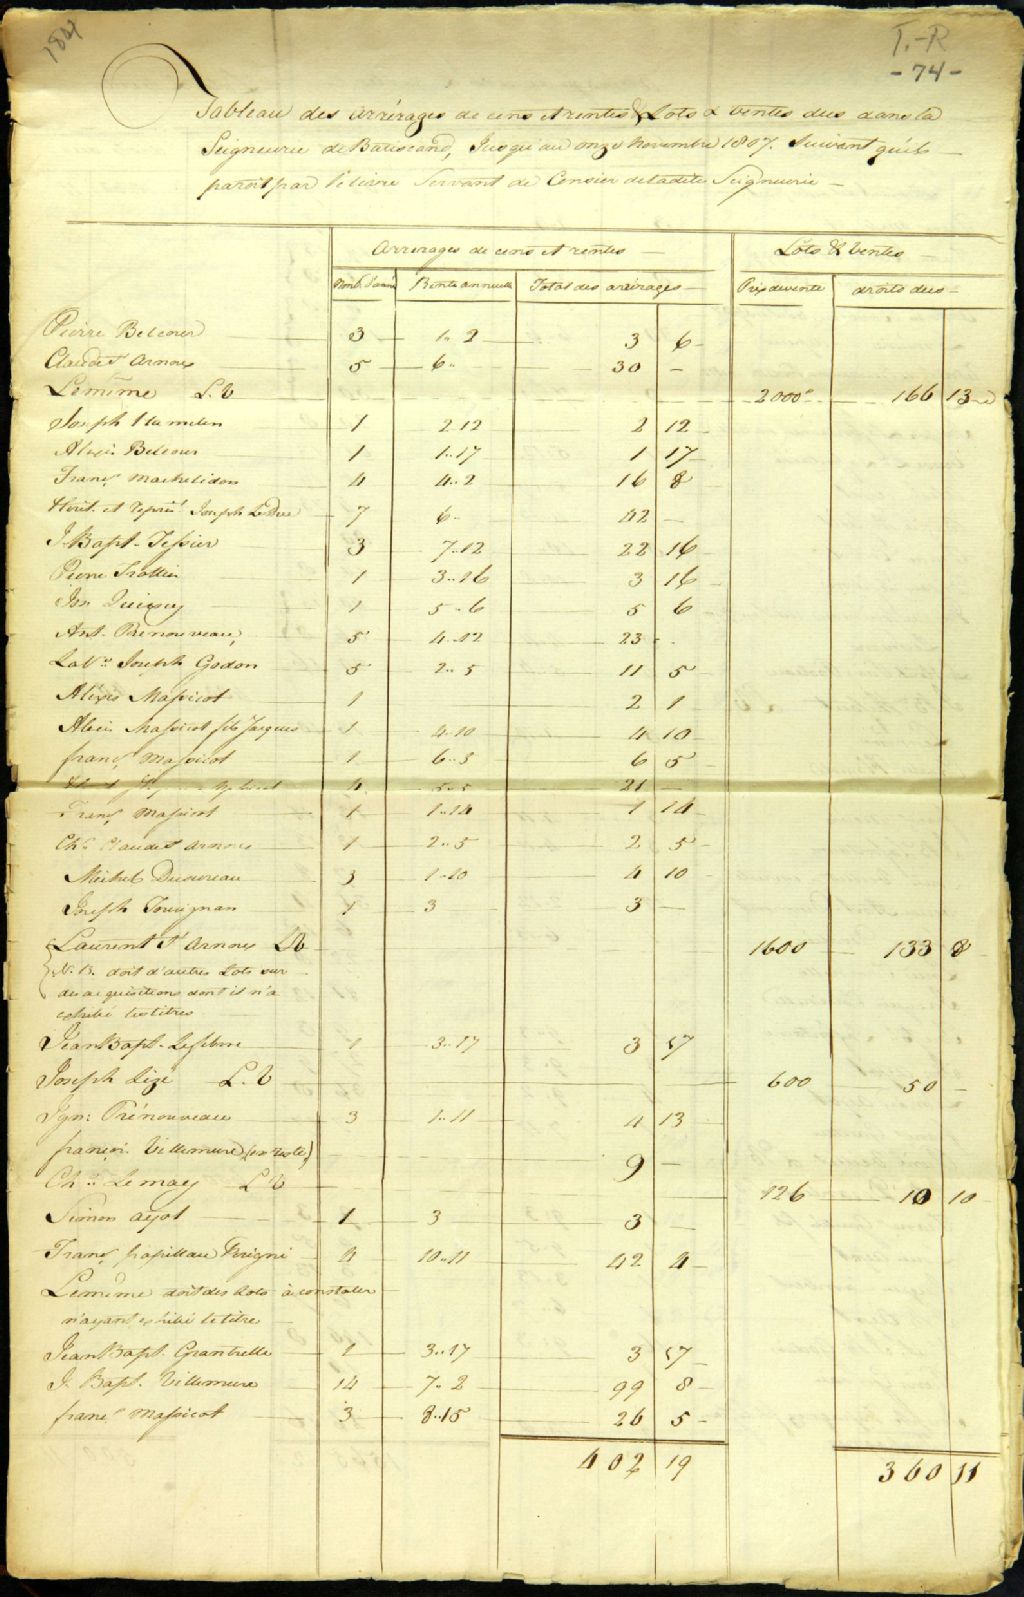 T.-R
-74-
Tableau des arrérages de cens et rentes & Lots & ventes dus dans la
Seigneurie de Batiscand, Jusqu'au onze novembre 1807. Suivant qu'il
paroit par le livre Servant de Censier de ladite Seigneurie —
Arrérages de cens et rentes — Lots & ventes
Rente annuelle Total des arrérages — Prix de vente droits dus —
Pierre Belcour 3 1..2 3 6
Claude St Arnous 5 6.. 30 —
Lemême L.V 2000 166 13
Joseph 1 2.12 2 12
Alexis Belcour 1 1..17 1 17
Franç. 4 4..2 16 8
Hérit. et représ. Joseph 7 6.. 42 —
J. Bapt. Tessier 3 7..12 22 16
Pierre Trottier 1 3..16 3 16
1 5..6 5 6
Ant. Prénouveau 5 4..12 23 ..
La Ve Joseph Godon 5 2..5 11 5
Alexis Massicot 1 2 1
Alexis Massicot fils Jacques 1 4..10 4 10
franç. Massicot 1 6..5 6 5
4 5..5 21 —
Franç. Massicot 1 1..14 1 14
Chs Claude St Arnous 1 2..5 2 5
Michel Dusureau 3 1..10 4 10
Joseph Tourignan 1 3 3 —
Laurent St Arnous LV 1600 133 8
N.B. doit d'autres Lots sur
des acquisitions dont il n'a
exhibé les titres
Jean Bapt. Lefebvre 1 3..17 3 17
Joseph Lizé L.V 600 50 —
Ign: Prénouveau 3 1..11 4 13
françois Villemure (en reste) 9 —
Chs Lemay LV 126 10 10
Simon ayot 1 3 3 —
Franç. papillau Périgni 4 10..11 42 4
Lemême doit des lots à constater
n'ayant exhibé le titre
Jean Bapt. Grantrelle 1 3..17 3 17
J. Bapt. Villemure 14 7..2 99 8
franç. Massicot 3 8..15 26 5
402 19 360 11